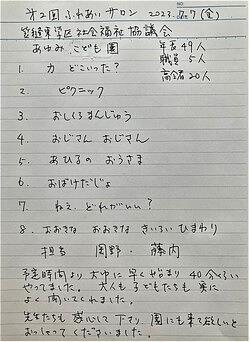 第2回 ふれあい サロン 2023.7.7 (金)
学区社会福祉協議会
あゆみ こども園
年長 49人
職員 5人
高令者 20人
1. カ どこいった?
2. ピクニック
3. おしくらまんじゅう
4. おじさん おじさん
5. あひるの おうさま
6. おばけだじょ
7. ねえ、どれがいい?
8. おおきな おおきな きいろい ひまわり
担当 岡野・藤内
予定時間より大巾に早く始まり 40分くらい
やってました。大人も子どもたちも 実に
よく聞いてくれました。
先生たちも 感心して下さり、園にも来て欲しいと
おっしゃって くださいました。